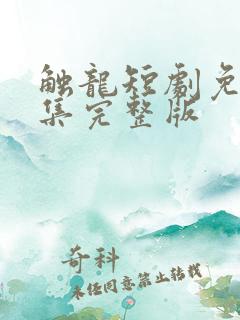 触龍短劇免
集完整版
奇科
未经同意禁止转载